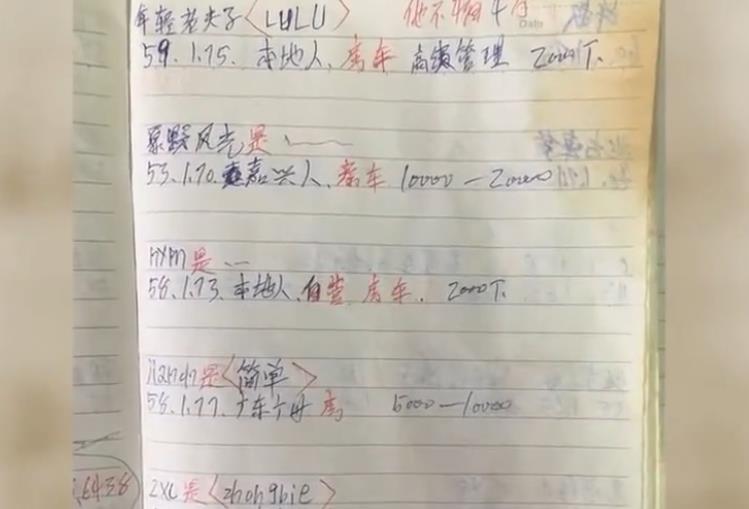 年轻老夫子〈LULU〉 他不
Date
59. 1.75. 本地人. 房车 高级管理 20000下.
原野风光是
53. 1.70. 嘉兴人. 房车 10000—20000
MXM是
58. 1.73. 本地人. 自营 房车. 20000下.
是〈简单〉
58. 1.77. 广东 房 5000—10000
6438
ZXL是〈zhongbie〉